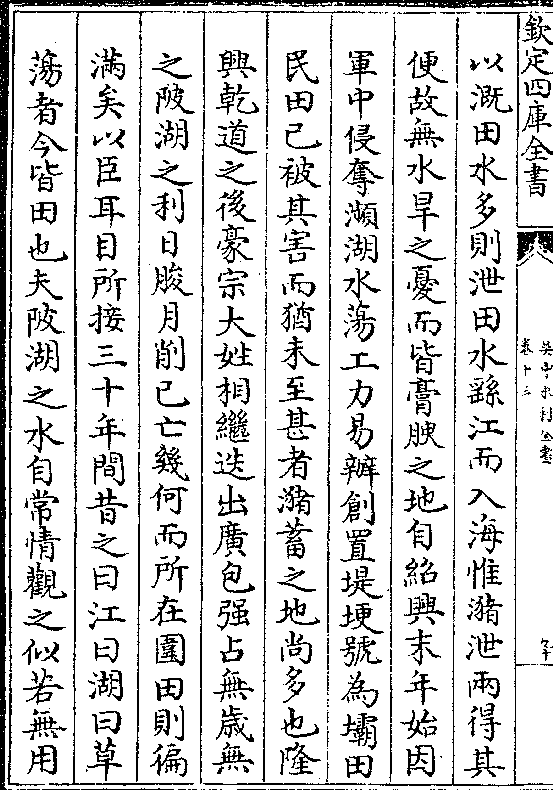 欽定四庫全書
吳中水利全書
卷十三
以溉田水多則泄田水繇江而入海惟瀦泄兩得其
便故無水旱之憂而皆膏腴之地自紹興末年始因
軍中侵奪瀕湖水蕩工力易辦創置堤埂號為壩田
民田已被其害而猶未至甚者瀦蓄之地尚多也隆
興乾道之後豪宗大姓相繼迭出廣包强占無歲無
之陂湖之利日朘月削已亡幾何而所在圍田則徧
滿矣以臣耳目所接三十年間昔之曰江曰湖曰草
蕩者今皆田也夫陂湖之水自常情觀之似若無用